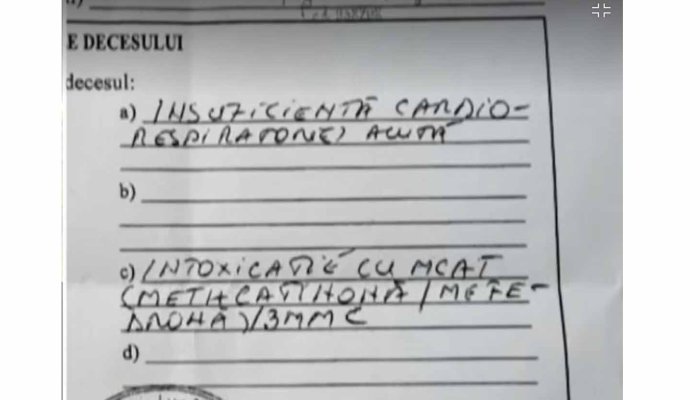 E DECESULUI
decesul:
a) INSUFICIENTĂ CARDIO-
RESPIRATORIE ACUTĂ
b)
c) INTOXICATIE CU MCAT
(METHCATIHONĂ / MEFE-
DROHĂ)/3MMC
d)